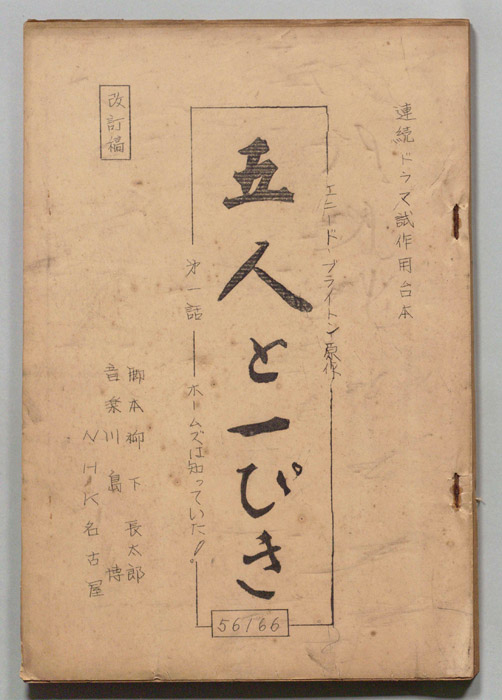 連続ドラマ試作用台本
エニード・ブライトン原作
五人と一ぴき
第一話 ― ホームズは知っていた!
改訂稿
脚本 柳下長太郎
音楽 川島博
NHK名古屋
56166